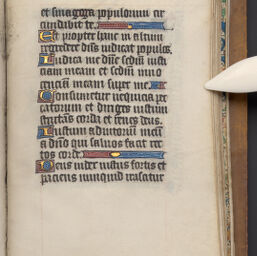 et sinagoga populorum cir
cumdabit te.
Et propter hanc in altum
regredere dn̄s iudicat populos.
Iudica me dn̄e scdm̄ iusti
ciam meam et scdm̄ inno
cenciam meam super me.
Consumetur nequicia pec
catorum et diriges iustum
scrutans corda et renes deus.
Iustum adiutorium meū
a dn̄o qui saluos facit rec
tos corde.
Deus iudex iustus fortis et
paciens nunquid irascitur